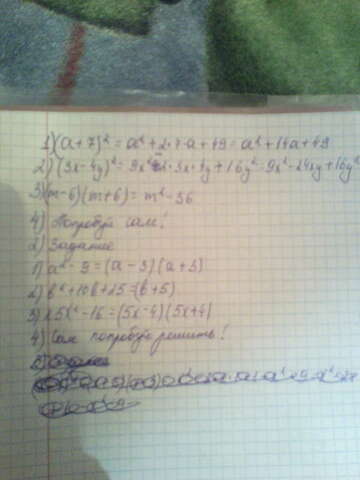 1) (a+7)² = a²+2·7·a+49 = a²+14a+49
2) (3x-4y)² = 9x² 2·3x·4y+16y² = 9x²-24xy+16y²
3) (m-6)(m+6) = m²-36
4) Попробуй сам!
2) Задание
1) a²-9=(a-3)(a+3)
2) b²+10b+25=(b+5)
3) 25x²-16=(5x-4)(5x+4)
4) Сам попробуй решить!